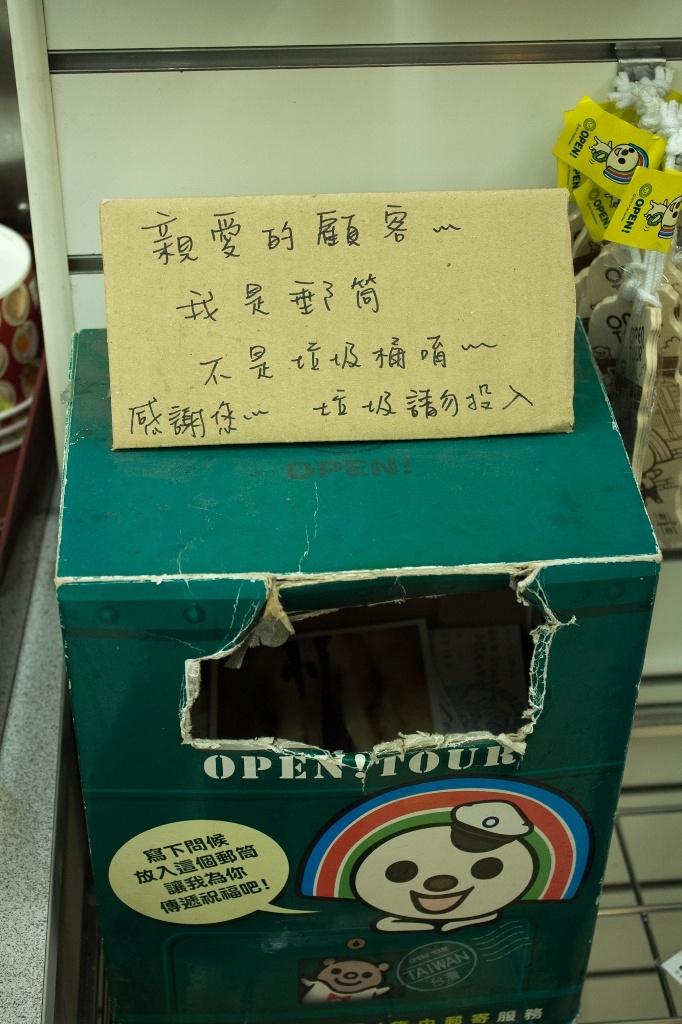 親愛的顧客~
我是郵筒
不是垃圾桶唷~
感謝您~ 垃圾請勿投入
OPEN!
OPEN!TOUR
寫下問候
放入這個郵筒
讓我為你
傳遞祝福吧!
TAIWAN
台灣
郵寄服務
OPEN!
OPEN!
OPEN!